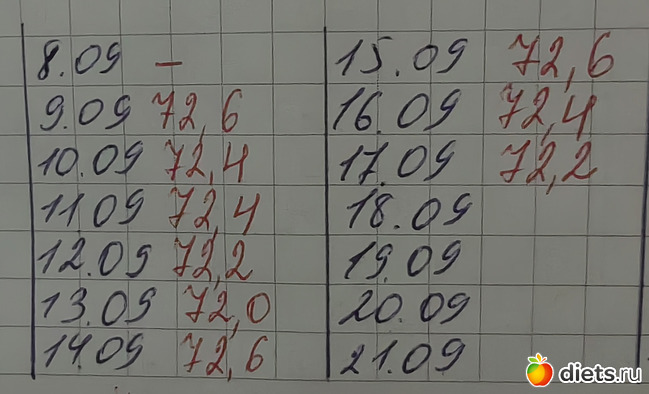 8.09 –
9.09 72,6
10.09 72,4
11 09 72,4
12.09 72,2
13.09 72,0
14.09 72,6
15.09 72,6
16.09 72,4
17.09 72,2
18.09
19.09
20.09
21.09
diets.ru